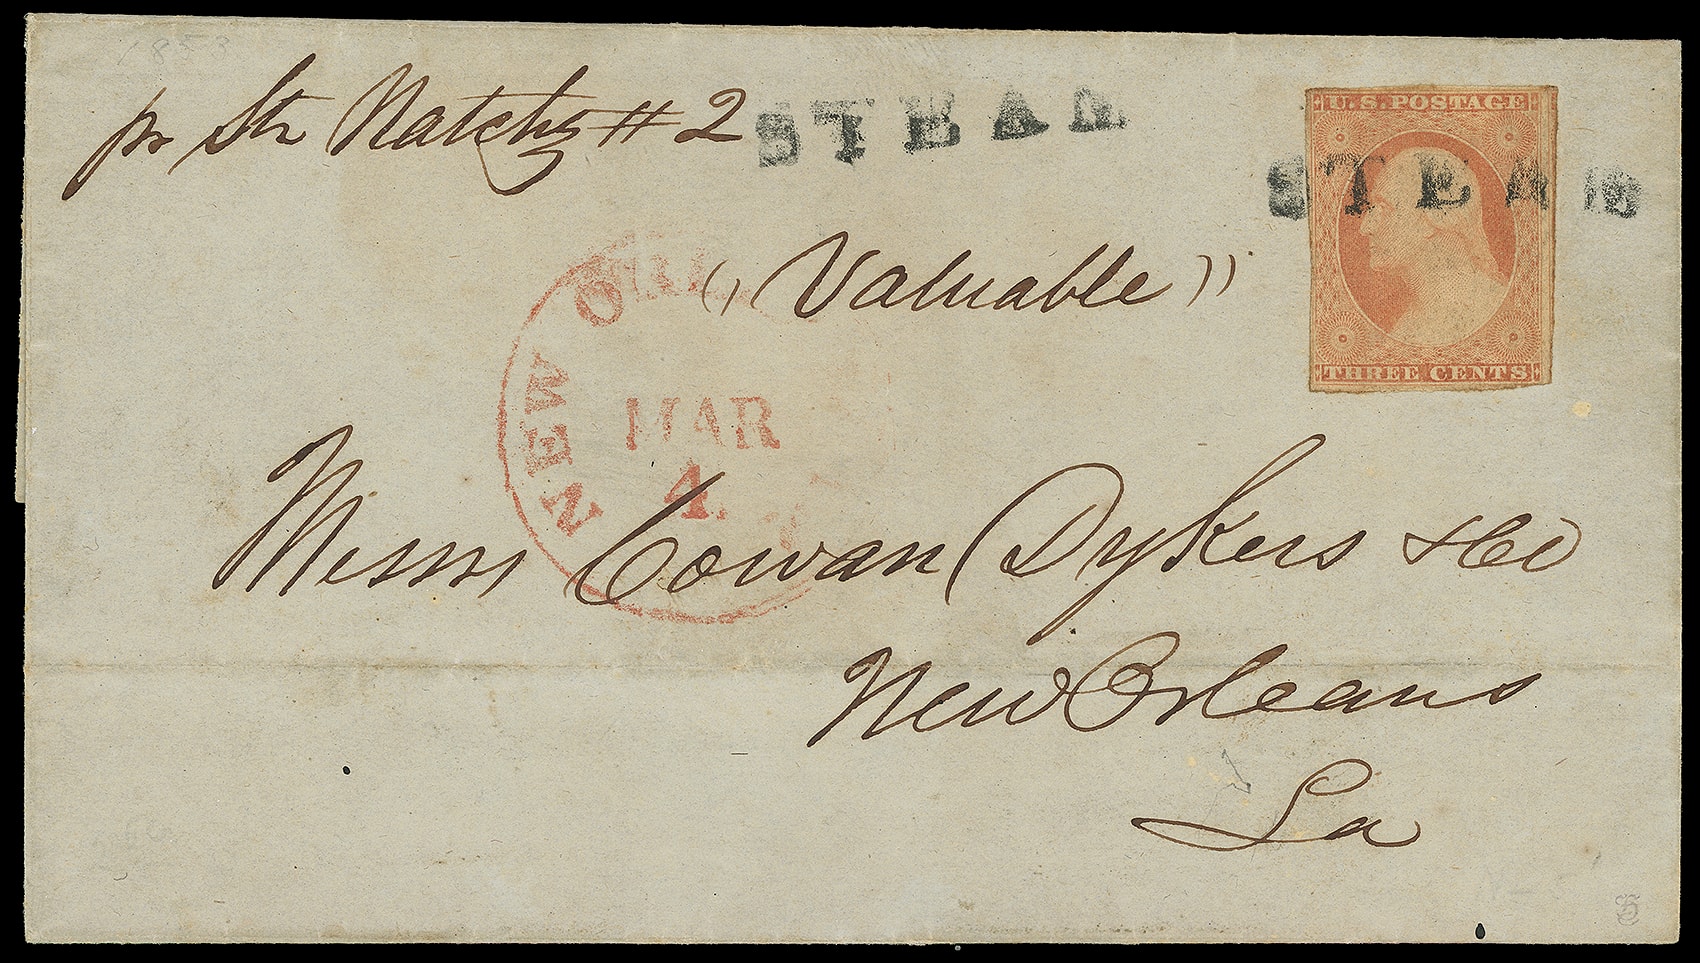 1853
pr Str Natchz #2
STEAM
U.S. POSTAGE
STEAM
THREE CENTS
"Valuable"
NEW ORL
MAR
4.
Messrs Cowan Dykers & Co
New Orleans
La